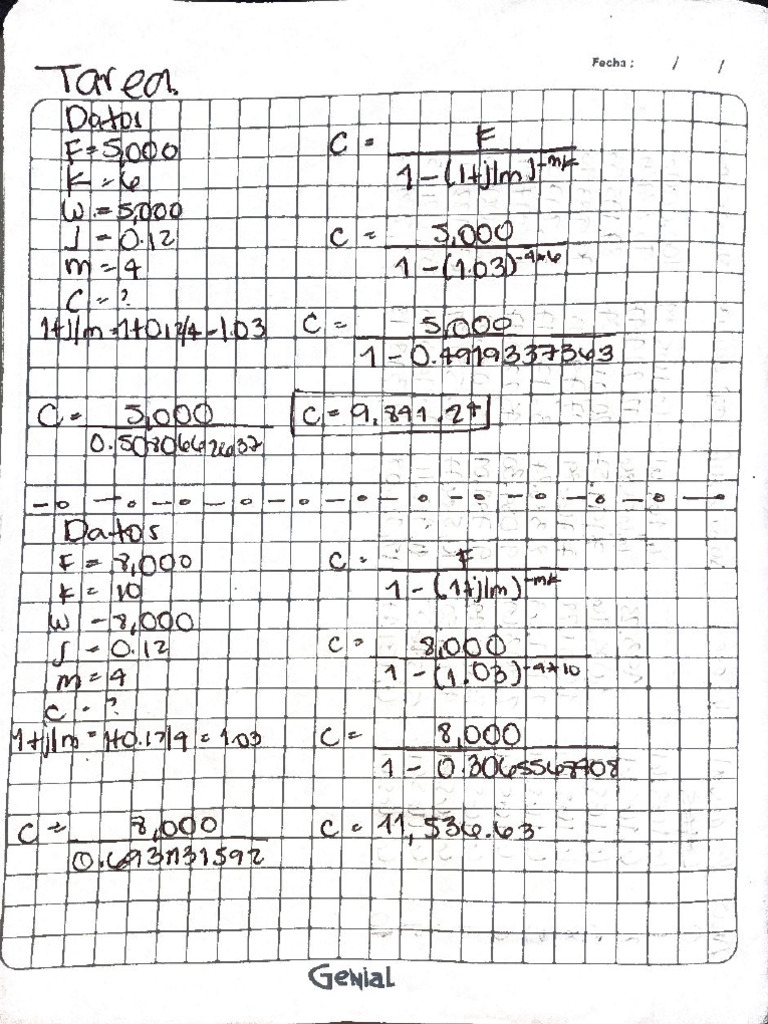 Fecha: / /
Tarea
Datos
F = 5,000
K = 6
W = 5,000
J = 0.12
m = 4
C = ?
1+J/m = 1+0.12/4 = 1.03
C = F / 1 - (1+j/m)^-mk
C = 5,000 / 1 - (1.03)^-4*6
C = 5,000 / 1 - 0.4919337363
C = 5,000 / 0.5080662637
C = 9,841.24
Datos
F = 8,000
K = 10
W = 8,000
J = 0.12
m = 4
C = ?
1+j/m = 1+0.12/4 = 1.03
C = F / 1 - (1+j/m)^-mk
C = 8,000 / 1 - (1.03)^-4*10
C = 8,000 / 1 - 0.3065568408
C = 8,000 / 0.6934431592
C = 11,536.63
Genial